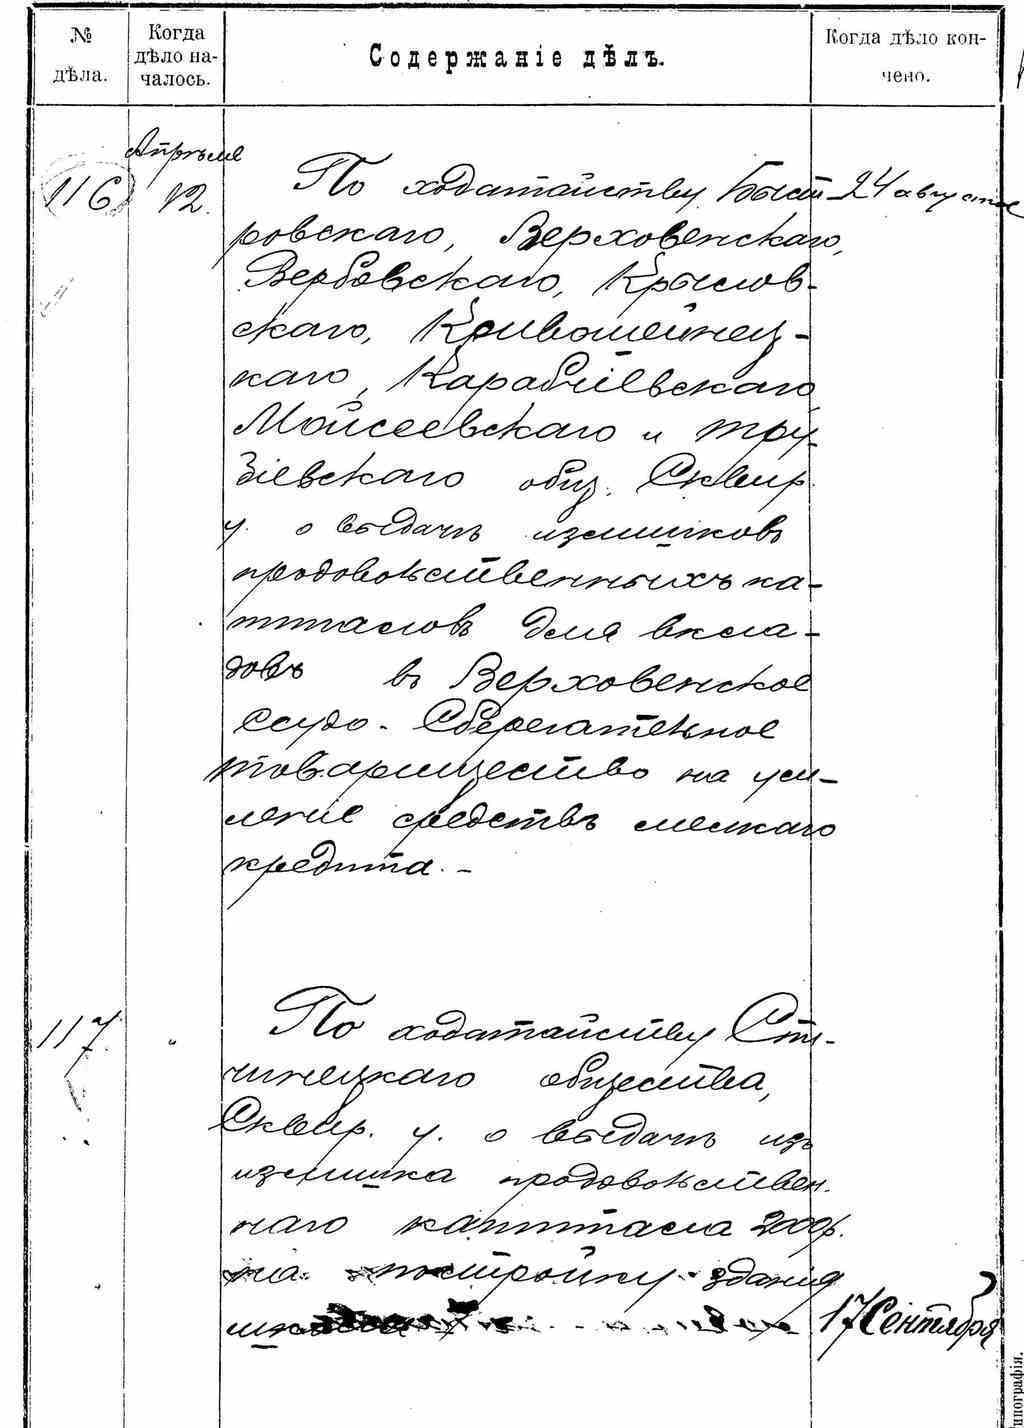 № дѣла.
Когда дѣло началось.
Содержаніе дѣлъ.
Когда дѣло кончено.
Апрѣля
116
12.
По ходатайству Быст-
24 августа
ровскаго, Верховенскаго,
Вербовскаго, Крылов-
скаго, Кривошеинец-
каго, Карабчіевскаго
Мойсеевскаго и Тру-
зіевскаго общ. Сквир.
у. о выдачѣ излишковъ
продовольственныхъ ка-
питаловъ для вкла-
довъ въ Верховенское
Ссудо-Сберегательное
товарищество на уси-
леніе средствъ мелкаго
кредита.-
117
"
По ходатайству Сти-
чинецкаго общества,
Сквир. у. о выдачѣ изъ
излишка продовольствен-
наго капитала 2000 р.
на постройку зданія
17 Сентября